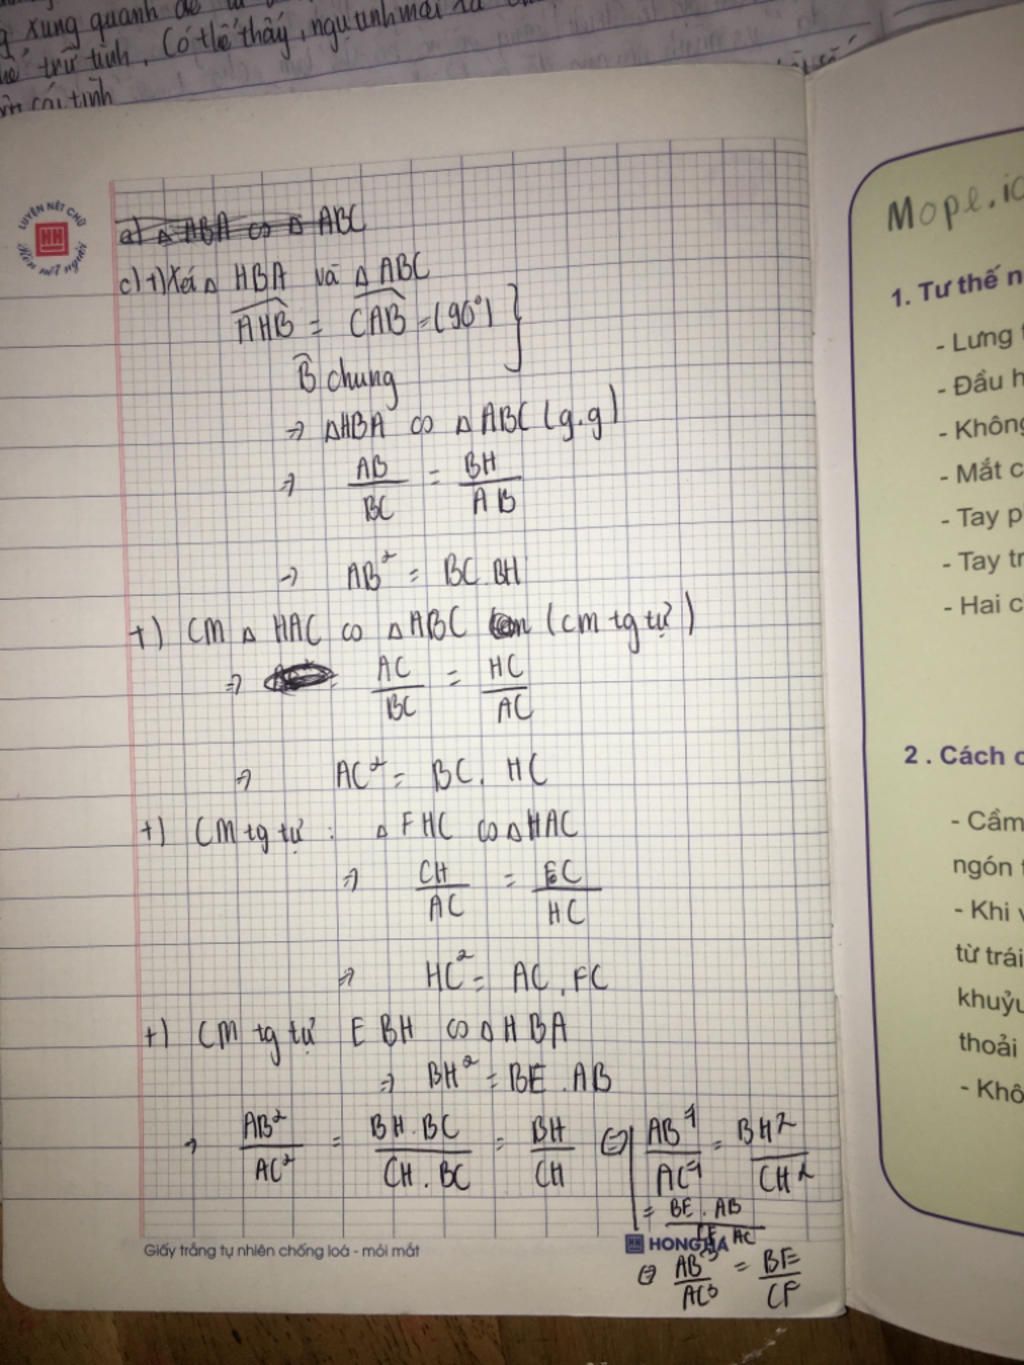 xung quanh để
trữ tình. Có thể thấy, ngự tình mai
cái tình
LUYỆN NÉT CHỮ
HH
Rèn nết người
a) △ ABA ∽ △ ABC
c) +) Xét △ HBA và △ ABC
AHB = CAB = (90°) }
B chung
⇒ △HBA ∽ △ABC (g.g)
⇒ AB/BC = BH/AB
⇒ AB² = BC.BH
+) CM △ HAC ∽ △ABC (cm tg tự)
⇒ AC/BC = HC/AC
⇒ AC² = BC. HC
+) CM tg tự : △ FHC ∽ △HAC
⇒ CH/AC = FC/HC
⇒ HC² = AC. FC
+) CM tg tự EBH ∽ △HBA
⇒ BH² = BE.AB
⇒ AB²/AC² = BH.BC/CH.BC = BH/CH ⇔ AB⁴/AC⁴ = BH²/CH²
= BE.AB/CF.AC
⇔ AB³/AC³ = BE/CF
Giấy trắng tự nhiên chống loá - mỏi mắt
HH HONG HA
Mope.ic
1. Tư thế n
- Lưng t
- Đầu h
- Không
- Mắt c
- Tay p
- Tay tr
- Hai c
2 . Cách c
- Cầm
ngón t
- Khi v
từ trái
khuỷu
thoải
- Khô